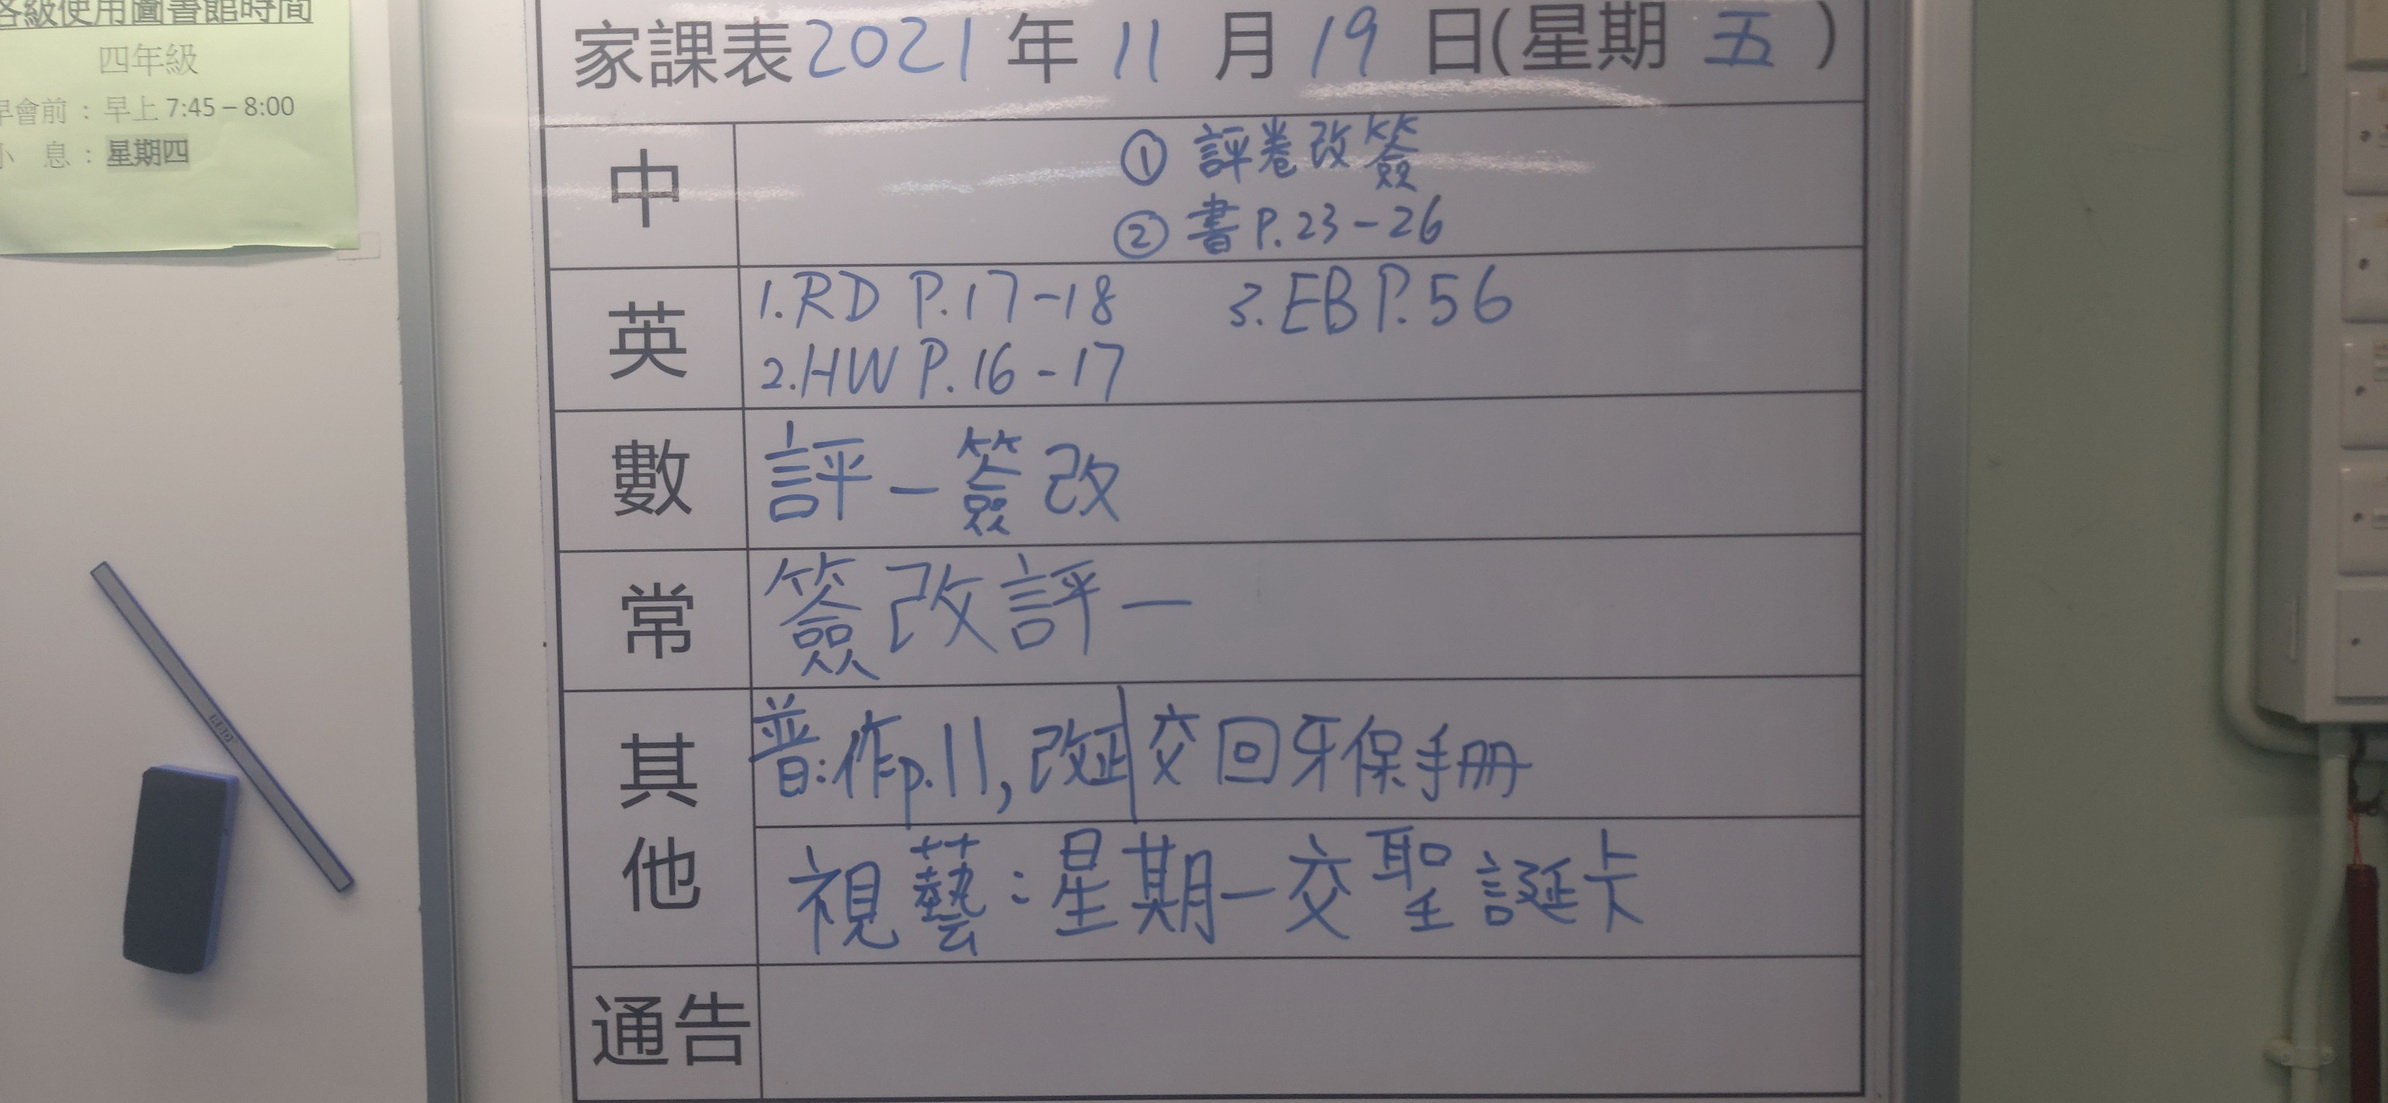 各級使用圖書館時間
四年級
早會前：早上 7:45 – 8:00
小 息：星期四
家課表2021年11月19日(星期五)
中
① 評卷改簽
② 書P.23-26
英
1.RD P.17-18 3.EB P.56
2.HW P.16-17
數
評一簽改
常
簽改評一
其他
普:作p.11,改正|交回牙保手冊
視藝:星期一交聖誕卡
通告